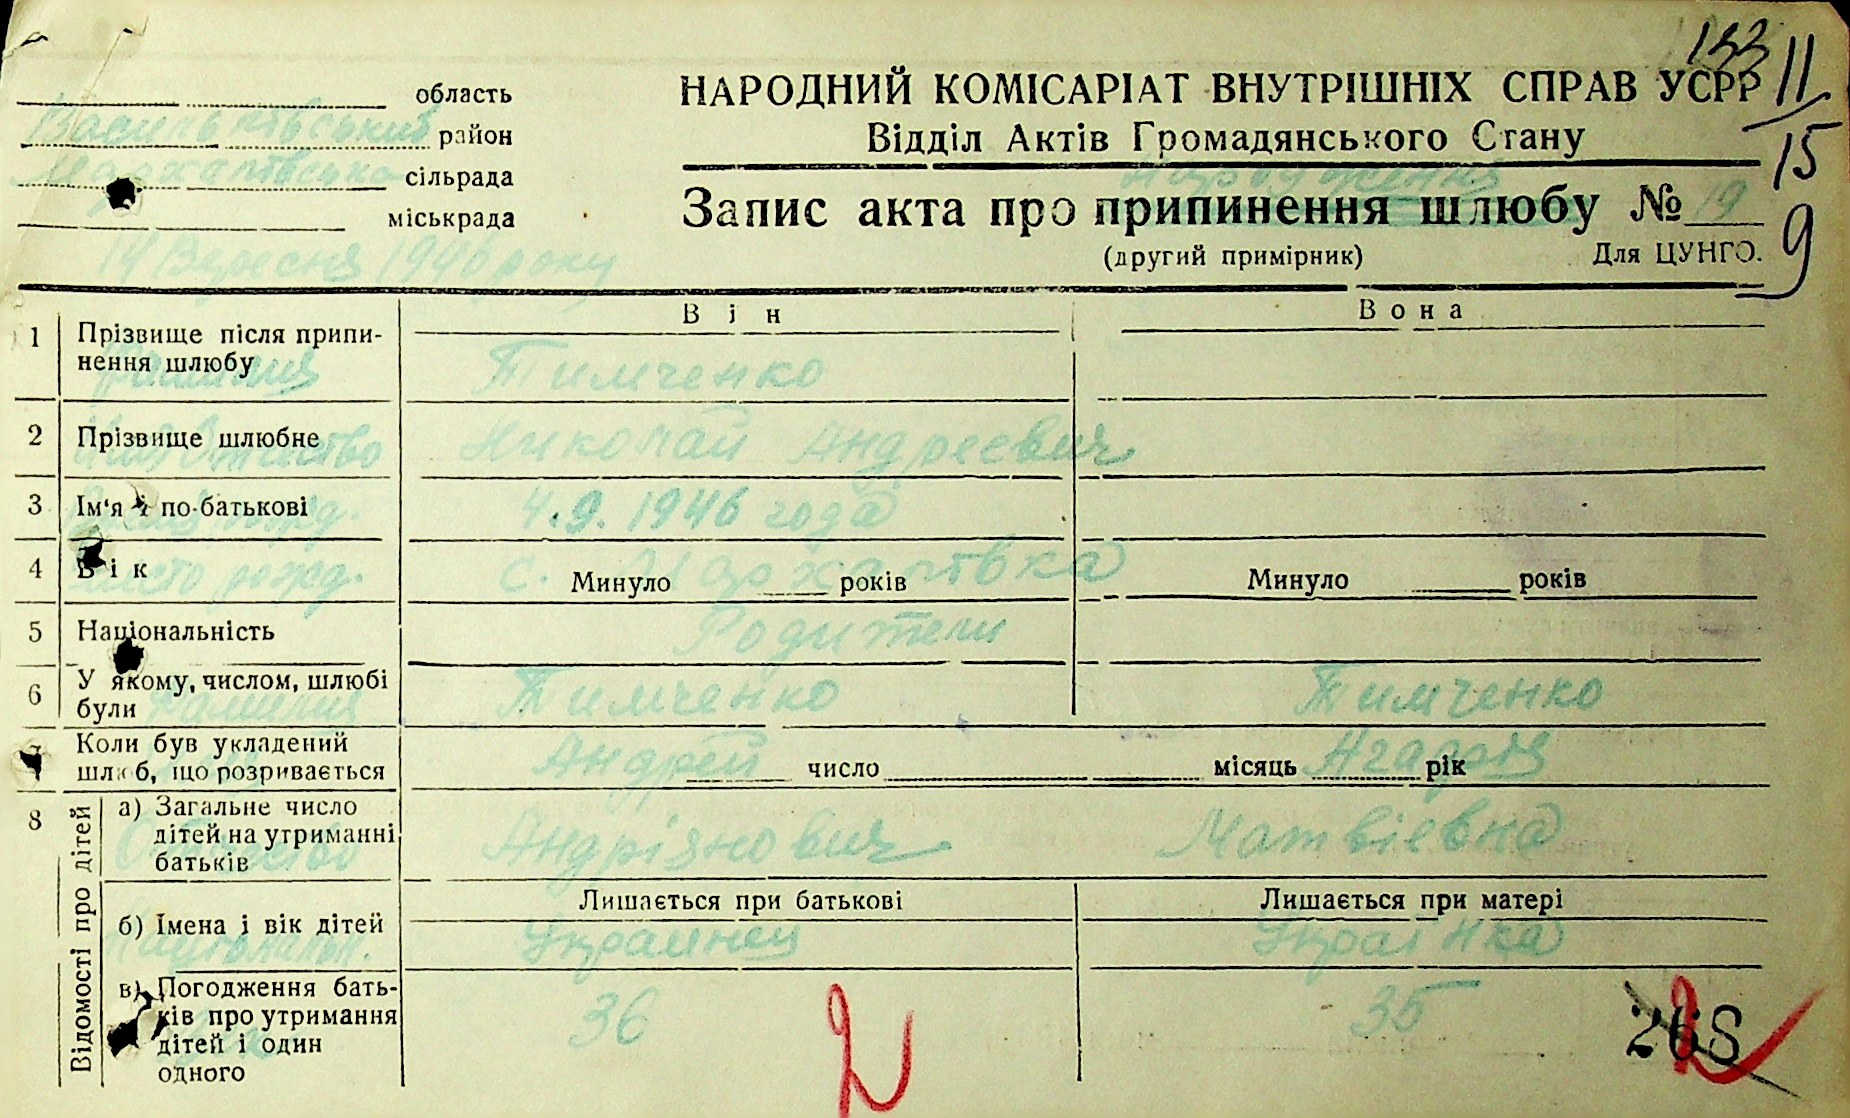 133
11/15
9
область
Васильківський район
сільрада
міськрада
НАРОДНИЙ КОМІСАРІАТ ВНУТРІШНІХ СПРАВ УСРР
Відділ Актів Громадянського Стану
народження
Запис акта про припинення шлюбу № 19
(другий примірник) Для ЦУНГО.
14 Вересня 1946 року
Він Вона
1 Прізвище після припи-
нення шлюбу
Фамилия Тимченко
2 Прізвище шлюбне
Отчество Николай Андреевич
3 Ім'я і по-батькові
4.9.1946 года
4 Вік Минуло років Минуло років
место рожд. с.
5 Національність
Родители
6 У якому, числом, шлюбі
були
Фамилия Тимченко Тимченко
7 Коли був укладений
шлюб, що розривається число місяць рік
Андрей
8 Відомості про дітей
а) Загальне число
дітей на утриманні
батьків
Отчество Андріянович Матвіевна
Лишається при батькові Лишається при матері
б) Імена і вік дітей
Украинец Українка
в) Погодження бать-
ків про утримання
дітей і один
одного
36 35
2 268 2